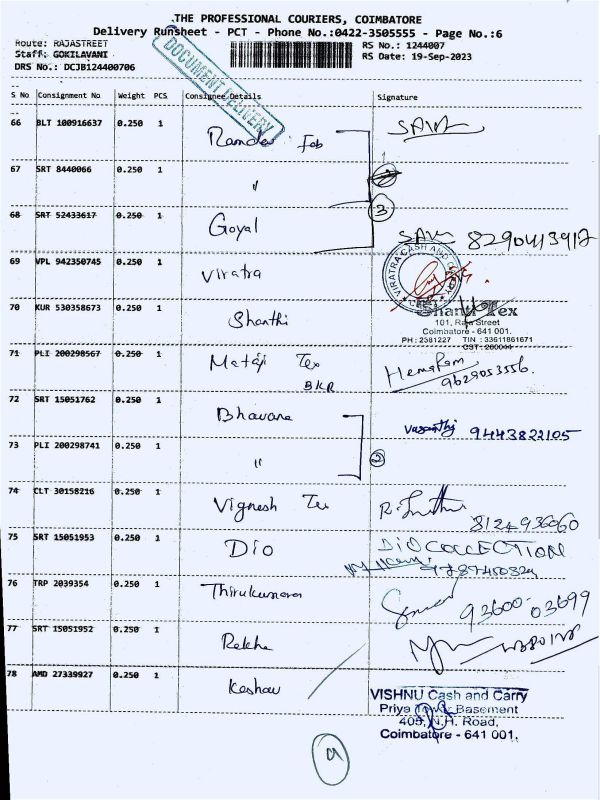 THE PROFESSIONAL COURIERS, COIMBATORE
Delivery Runsheet - PCT - Phone No.:0422-3505555 - Page No.:6
Route: RAJASTREET RS No.: 1244007
Staff: GOKILAVANI RS Date: 19-Sep-2023
DRS No.: DCJB124400706
DOCUMENT DELIVERY
S No Consignment No Weight PCS Consignee Details Signature
66 BLT 100916637 0.250 1 Ramdev Fab SAM
67 SRT 8440066 0.250 1 "
68 SRT 52433617 0.250 1 Goyal 3 SAM 8290413912
69 VPL 942350745 0.250 1 Viratra
VIRATRA CASH AND CARRY
70 KUR 530358673 0.250 1 Shanthi
Shanti Tex
101, Raja Street
Coimbatore - 641 001.
PH : 2381227 TIN : 33611861671
CST: 260044
71 PLI 200298567 0.250 1 Mataji Tex Hemaram
BKR 9629053556.
72 SRT 15051762 0.250 1 Bhavana
Vasanthi 9443822105
73 PLI 200298741 0.250 1 " 2
74 CLT 30158216 0.250 1 Vignesh Tex
75 SRT 15051953 0.250 1 DIO DIO COLLECTION
76 TRP 2039354 0.250 1 Thirukumaran 93600-03699
77 SRT 15051952 0.250 1 Rekha
78 AMD 27339927 0.250 1 Keshav
VISHNU Cash and Carry
Priya Tower Basement
405, N.H. Road,
Coimbatore - 641 001.
9